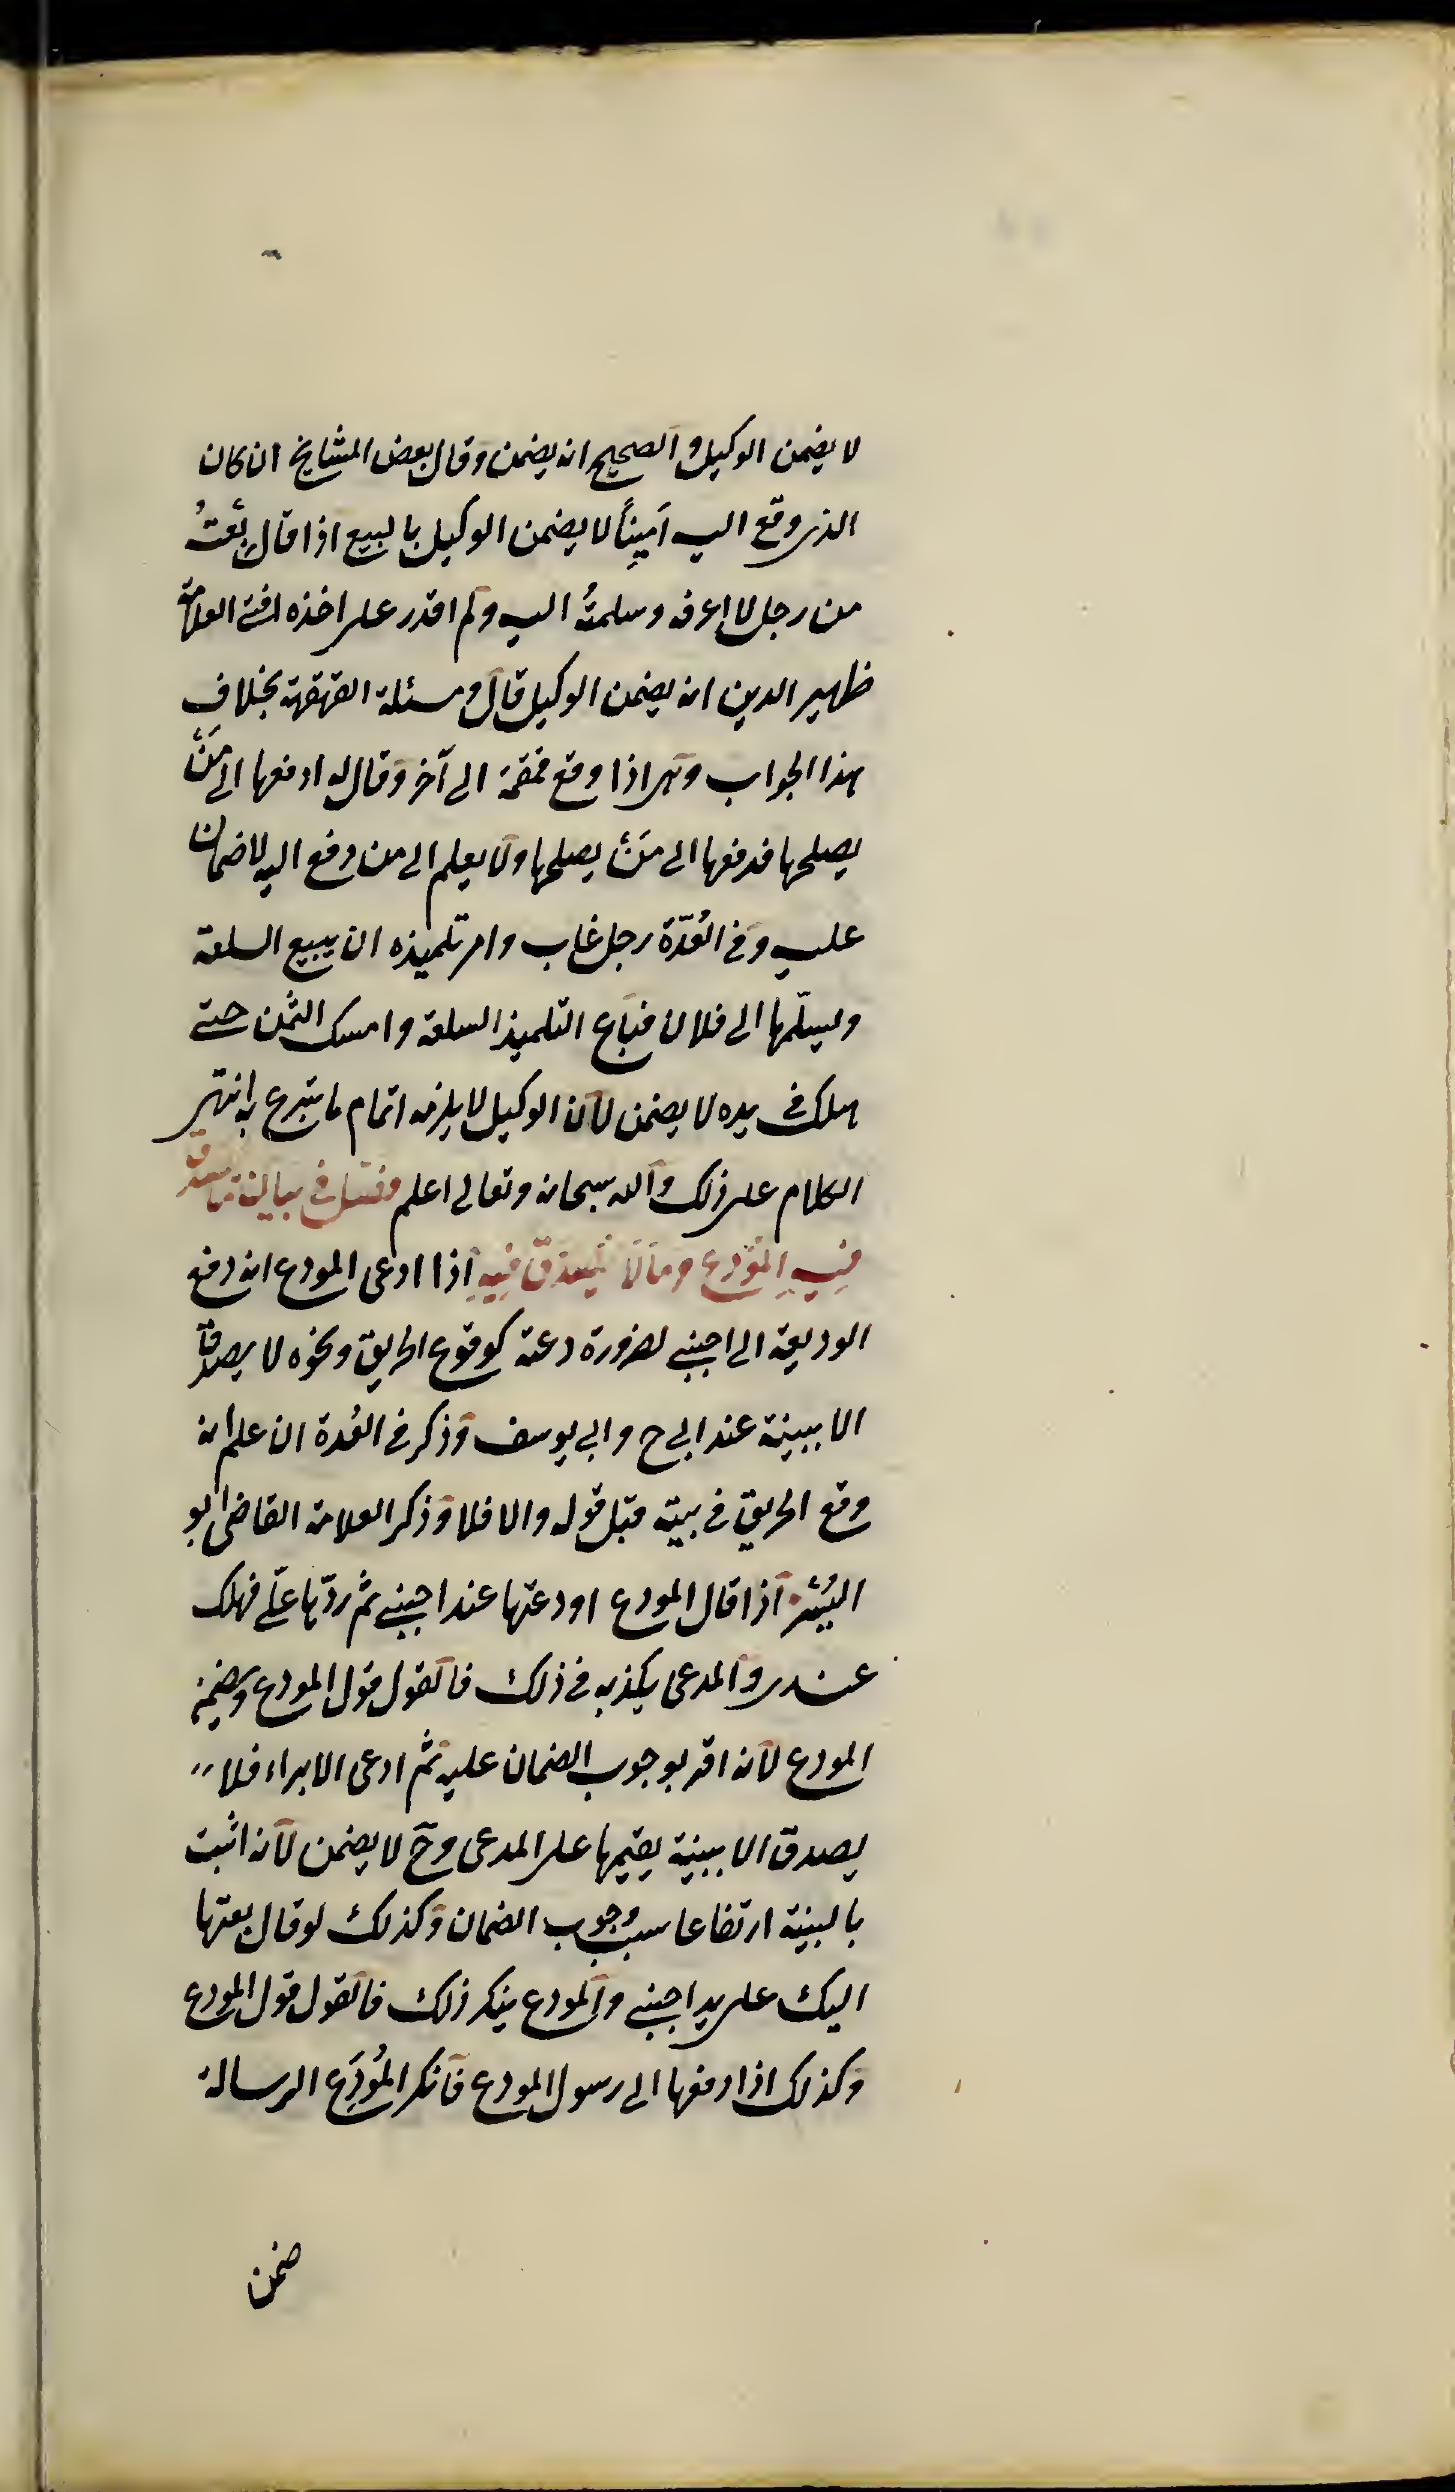 لا يضمن الوكيل والصحيح انه يضمن وقال بعض المشايخ ان كان
الذى دفع اليه اَمِيناً لا يضمن الوكيل بالبيع اذا قال بِعْتُ
من رجل لا اعرفه وسلمتُه اليه ولم اقدر على اخذه افتى العلامة
ظهير الدين انه يضمن الوكيل قال ومسئلة القمقمة بخلاف
هذا الجواب وهى اذا دفع قمقمة الى آخر وقال له ادفعها الى مَنْ
يصلحها فدفعها الى مَنْ يصلحها ولا يعلم الى من دفع اليه لا ضمان
عليه وفى العُدّة رجل غاب وامر تلميذه ان يبيع السلعة
ويسلّمها الى فلان فباع التلميذ السلعة وامسك الثمن حتى
هلك فى يده لا يضمن لان الوكيل لا يلزمه اتمام ما تبرع به انتهى
الكلام على ذلك والله سبحانه وتعالى اعلم فصل فى بيان ما يصدق
فيه المودع وما لا يصدق فيه اذا ادعى المودع انه دفع
الوديعة الى اجنبى لضرورة دعته كوقوع الحريق ونحوه لا يصدق
الا ببينة عند ابى ح وابى يوسف وذكر فى العُدة ان علم انه
وقع الحريق فى بيته قبل قوله والا فلا وذكر العلامة القاضى ابو
اليُسْر اذا قال المودع اودعتها عند اجنبى ثم ردّها علَىّ فهلك
عندى والمدعى يكذبه فى ذلك فالقول قول المودع ويضمن
المودع لانه اقر بوجوب الضمان عليه ثم ادعى الابراء فلا
يصدق الا ببينة يقيمها على المدعى وح لا يضمن لانه اثبت
بالبينة ارتفاعا سبب وجوب الضمان وكذلك لو قال بعثها
اليك على يد اجنبى والمودع ينكر ذلك فالقول قول المودع
وكذلك اذا دفعها الى رسول المودع فانكر المُودِع الرسالة
ضمن